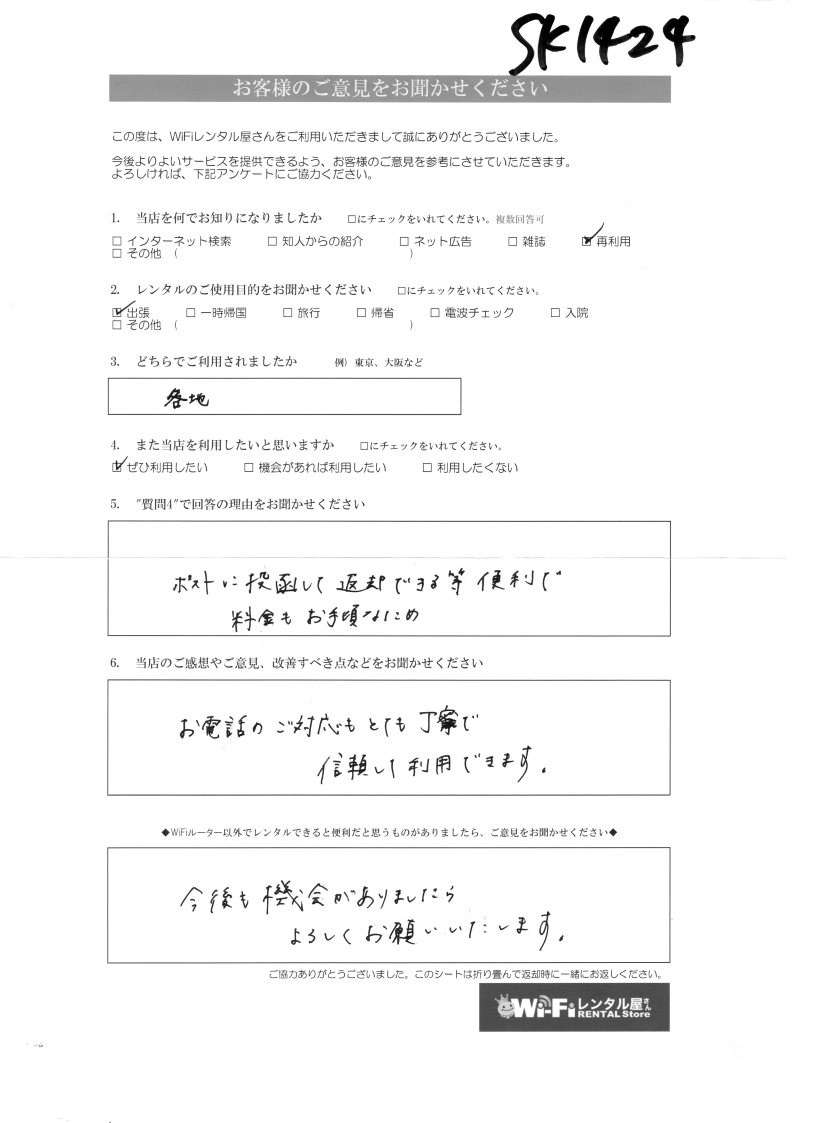 SK1424
お客様のご意見をお聞かせください
この度は、WiFiレンタル屋さんをご利用いただきまして誠にありがとうございました。
今後よりよいサービスを提供できるよう、お客様のご意見を参考にさせていただきます。
よろしければ、下記アンケートにご協力ください。
1. 当店を何でお知りになりましたか □にチェックをいれてください。複数回答可
□ インターネット検索 □ 知人からの紹介 □ ネット広告 □ 雑誌 ☑ 再利用
□ その他 ( )
2. レンタルのご使用目的をお聞かせください □にチェックをいれてください。
☑ 出張 □ 一時帰国 □ 旅行 □ 帰省 □ 電波チェック □ 入院
□ その他 ( )
3. どちらでご利用されましたか 例）東京、大阪など
各地
4. また当店を利用したいと思いますか □にチェックをいれてください。
☑ ぜひ利用したい □ 機会があれば利用したい □ 利用したくない
5. "質問4"で回答の理由をお聞かせください
ポストに投函して返却できる等便利で
料金もお手頃なため
6. 当店のご感想やご意見、改善すべき点などをお聞かせください
お電話のご対応もとても丁寧で
信頼して利用できます。
◆WiFiルーター以外でレンタルできると便利だと思うものがありましたら、ご意見をお聞かせください◆
今後も機会がありましたら
よろしくお願いいたします。
ご協力ありがとうございました。このシートは折り畳んで返却時に一緒にお返しください。
Wi-Fiレンタル屋さん
RENTAL Store